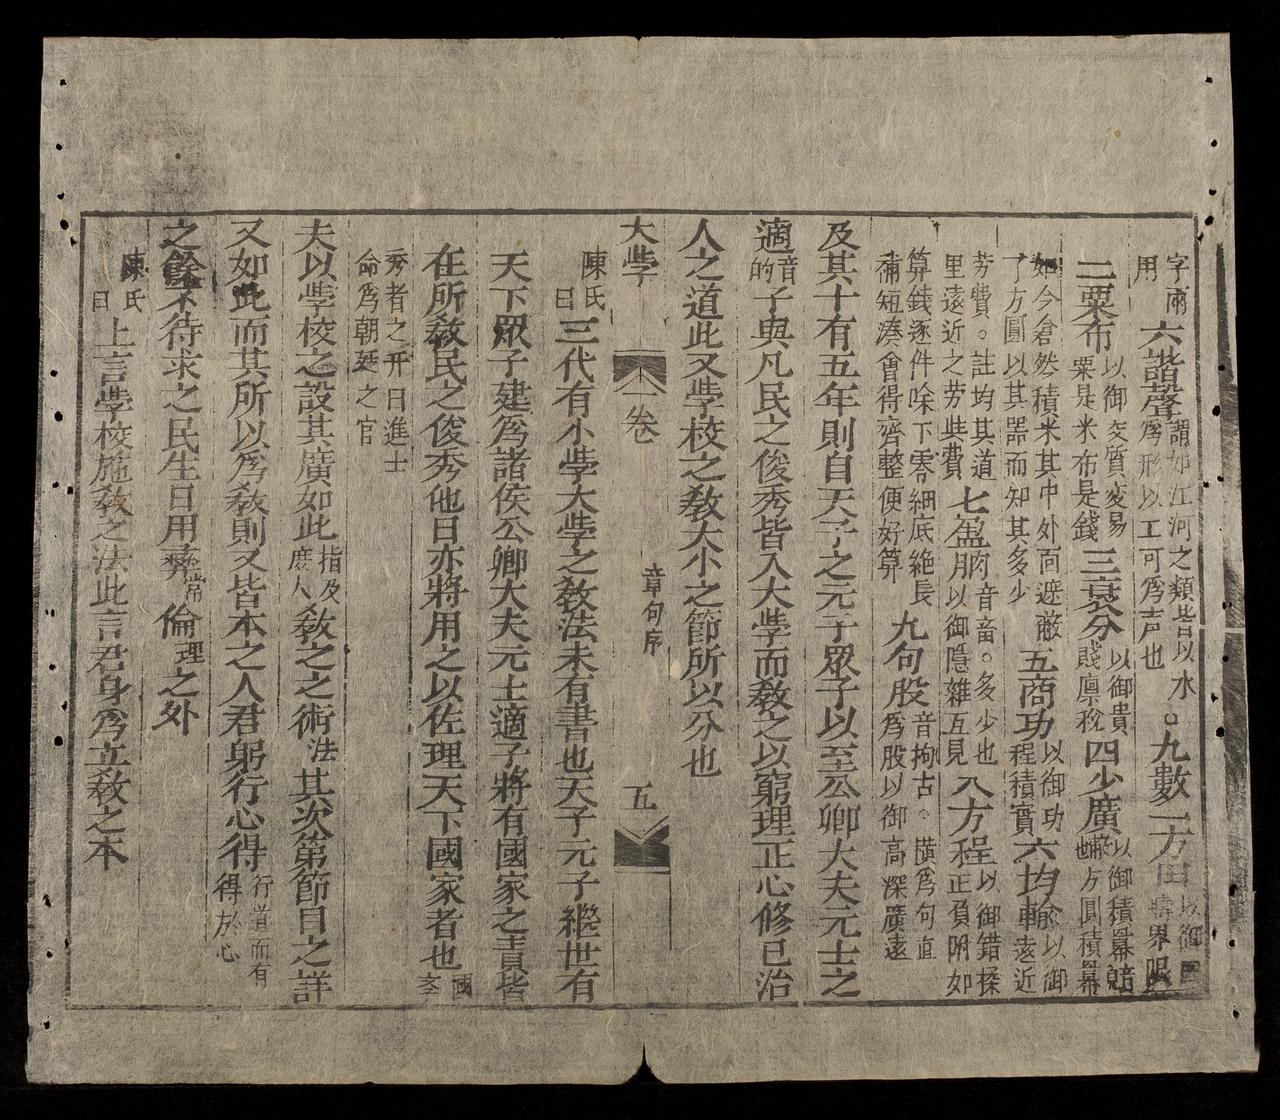 字兩
用
六諧聲
謂如江河之類皆以水
爲形以工可爲声也
○九數一方田
以御田
疇界限
二粟布
以御交質变易
粟是米布是錢
三衰分
以御貴
賎廩稅
四少廣
以御積羃
方圓積羃
如今倉然積米其中外面遮蔽
了方圓以其噐而知其多少
五商功
以御功
程積實
六均輸
以御
遠近
劳費。註均其道
里遠近之劳與費
七盈朒
音畜。多少也
以御隱雜互見
八方程
以御錯揉
正負附如
算錢逐件除下零細底絶長
補短湊會得齊整便好算
九句股
音拘古。橫爲句直
爲股以御高深廣遠
及其十有五年則自天子之元子眾子以至公卿大夫元士之
適音的子與凡民之俊秀皆入大學而敎之以窮理正心修己治
人之道此又學校之敎大小之節所以分也
大學 一卷 章句序 五
陳氏曰三代有小學大學之敎法未有書也天子元子繼世有
天下眾子建爲諸侯公卿大夫元士適子將有國家之責皆
在所敎民之俊秀他日亦將用之以佐理天下國家者也
秀者之升曰進士
命爲朝廷之官
夫以學校之設其廣如此指及庶人敎之之術法其次第節目之詳
又如此而其所以爲敎則又皆本之人君躬行心得行道而有得於心
之餘不待求之民生日用彝常倫理之外
陳氏曰上言學校施敎之法此言君身爲立敎之本